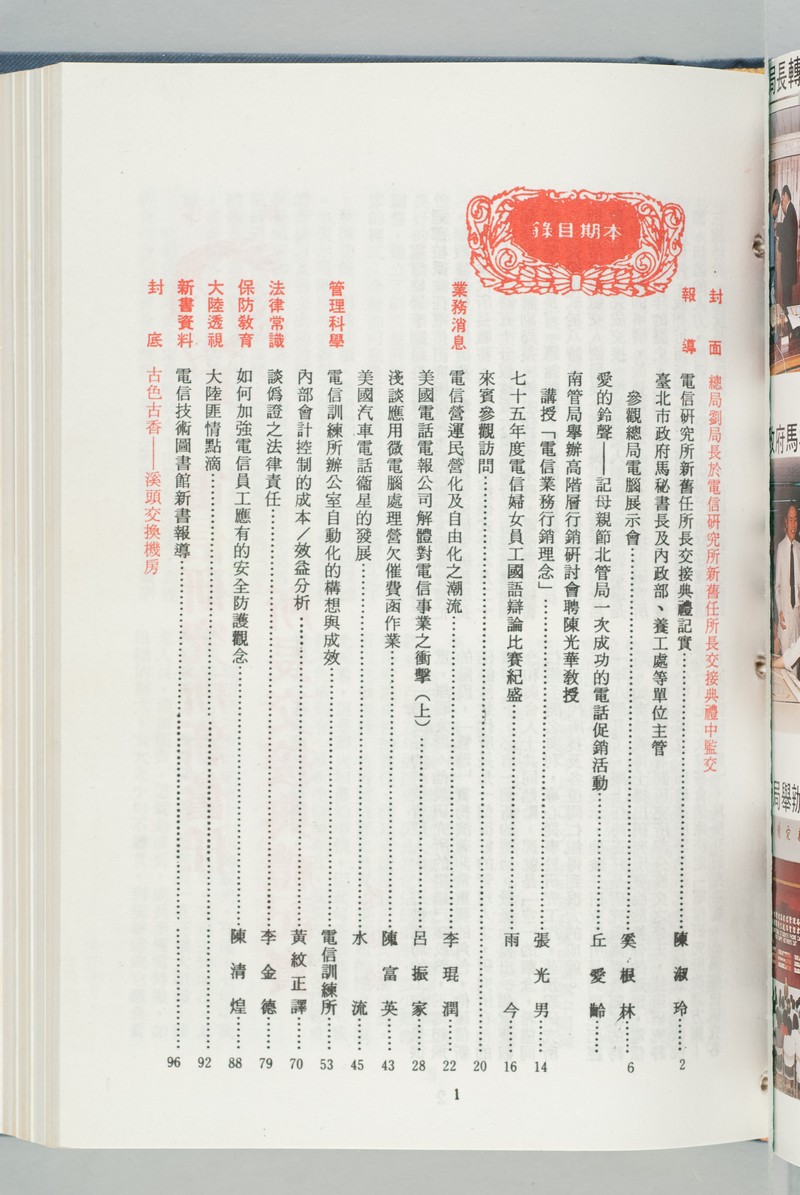 本期目錄
封面 總局劉局長於電信研究所新舊任所長交接典禮中監交
報導 電信研究所新舊任所長交接典禮記實……陳淑玲……2
臺北市政府馬秘書長及內政部、養工處等單位主管
參觀總局電腦展示會……奚根林……6
愛的鈴聲——記母親節北管局一次成功的電話促銷活動……丘愛齡……
南管局舉辦高階層行銷研討會聘陳光華教授
講授「電信業務行銷理念」……張光男……14
七十五年度電信婦女員工國語辯論比賽紀盛……雨今……16
來賓參觀訪問……20
業務消息 電信營運民營化及自由化之潮流……李琨潤……22
美國電話電報公司解體對電信事業之衝擊(上)……呂振家……28
淺談應用微電腦處理營欠催費函作業……陳富英……43
美國汽車電話衞星的發展……水流……45
管理科學 電信訓練所辦公室自動化的構想與成效……電信訓練所……53
內部會計控制的成本/效益分析……黃紋正譯……70
法律常識 談僞證之法律責任……李金德……79
保防教育 如何加強電信員工應有的安全防護觀念……陳清煌……88
大陸透視 大陸匪情點滴……92
新書資料 電信技術圖書館新書報導……96
封底 古色古香——溪頭交換機房
1
局長轉
政府馬
局舉辦